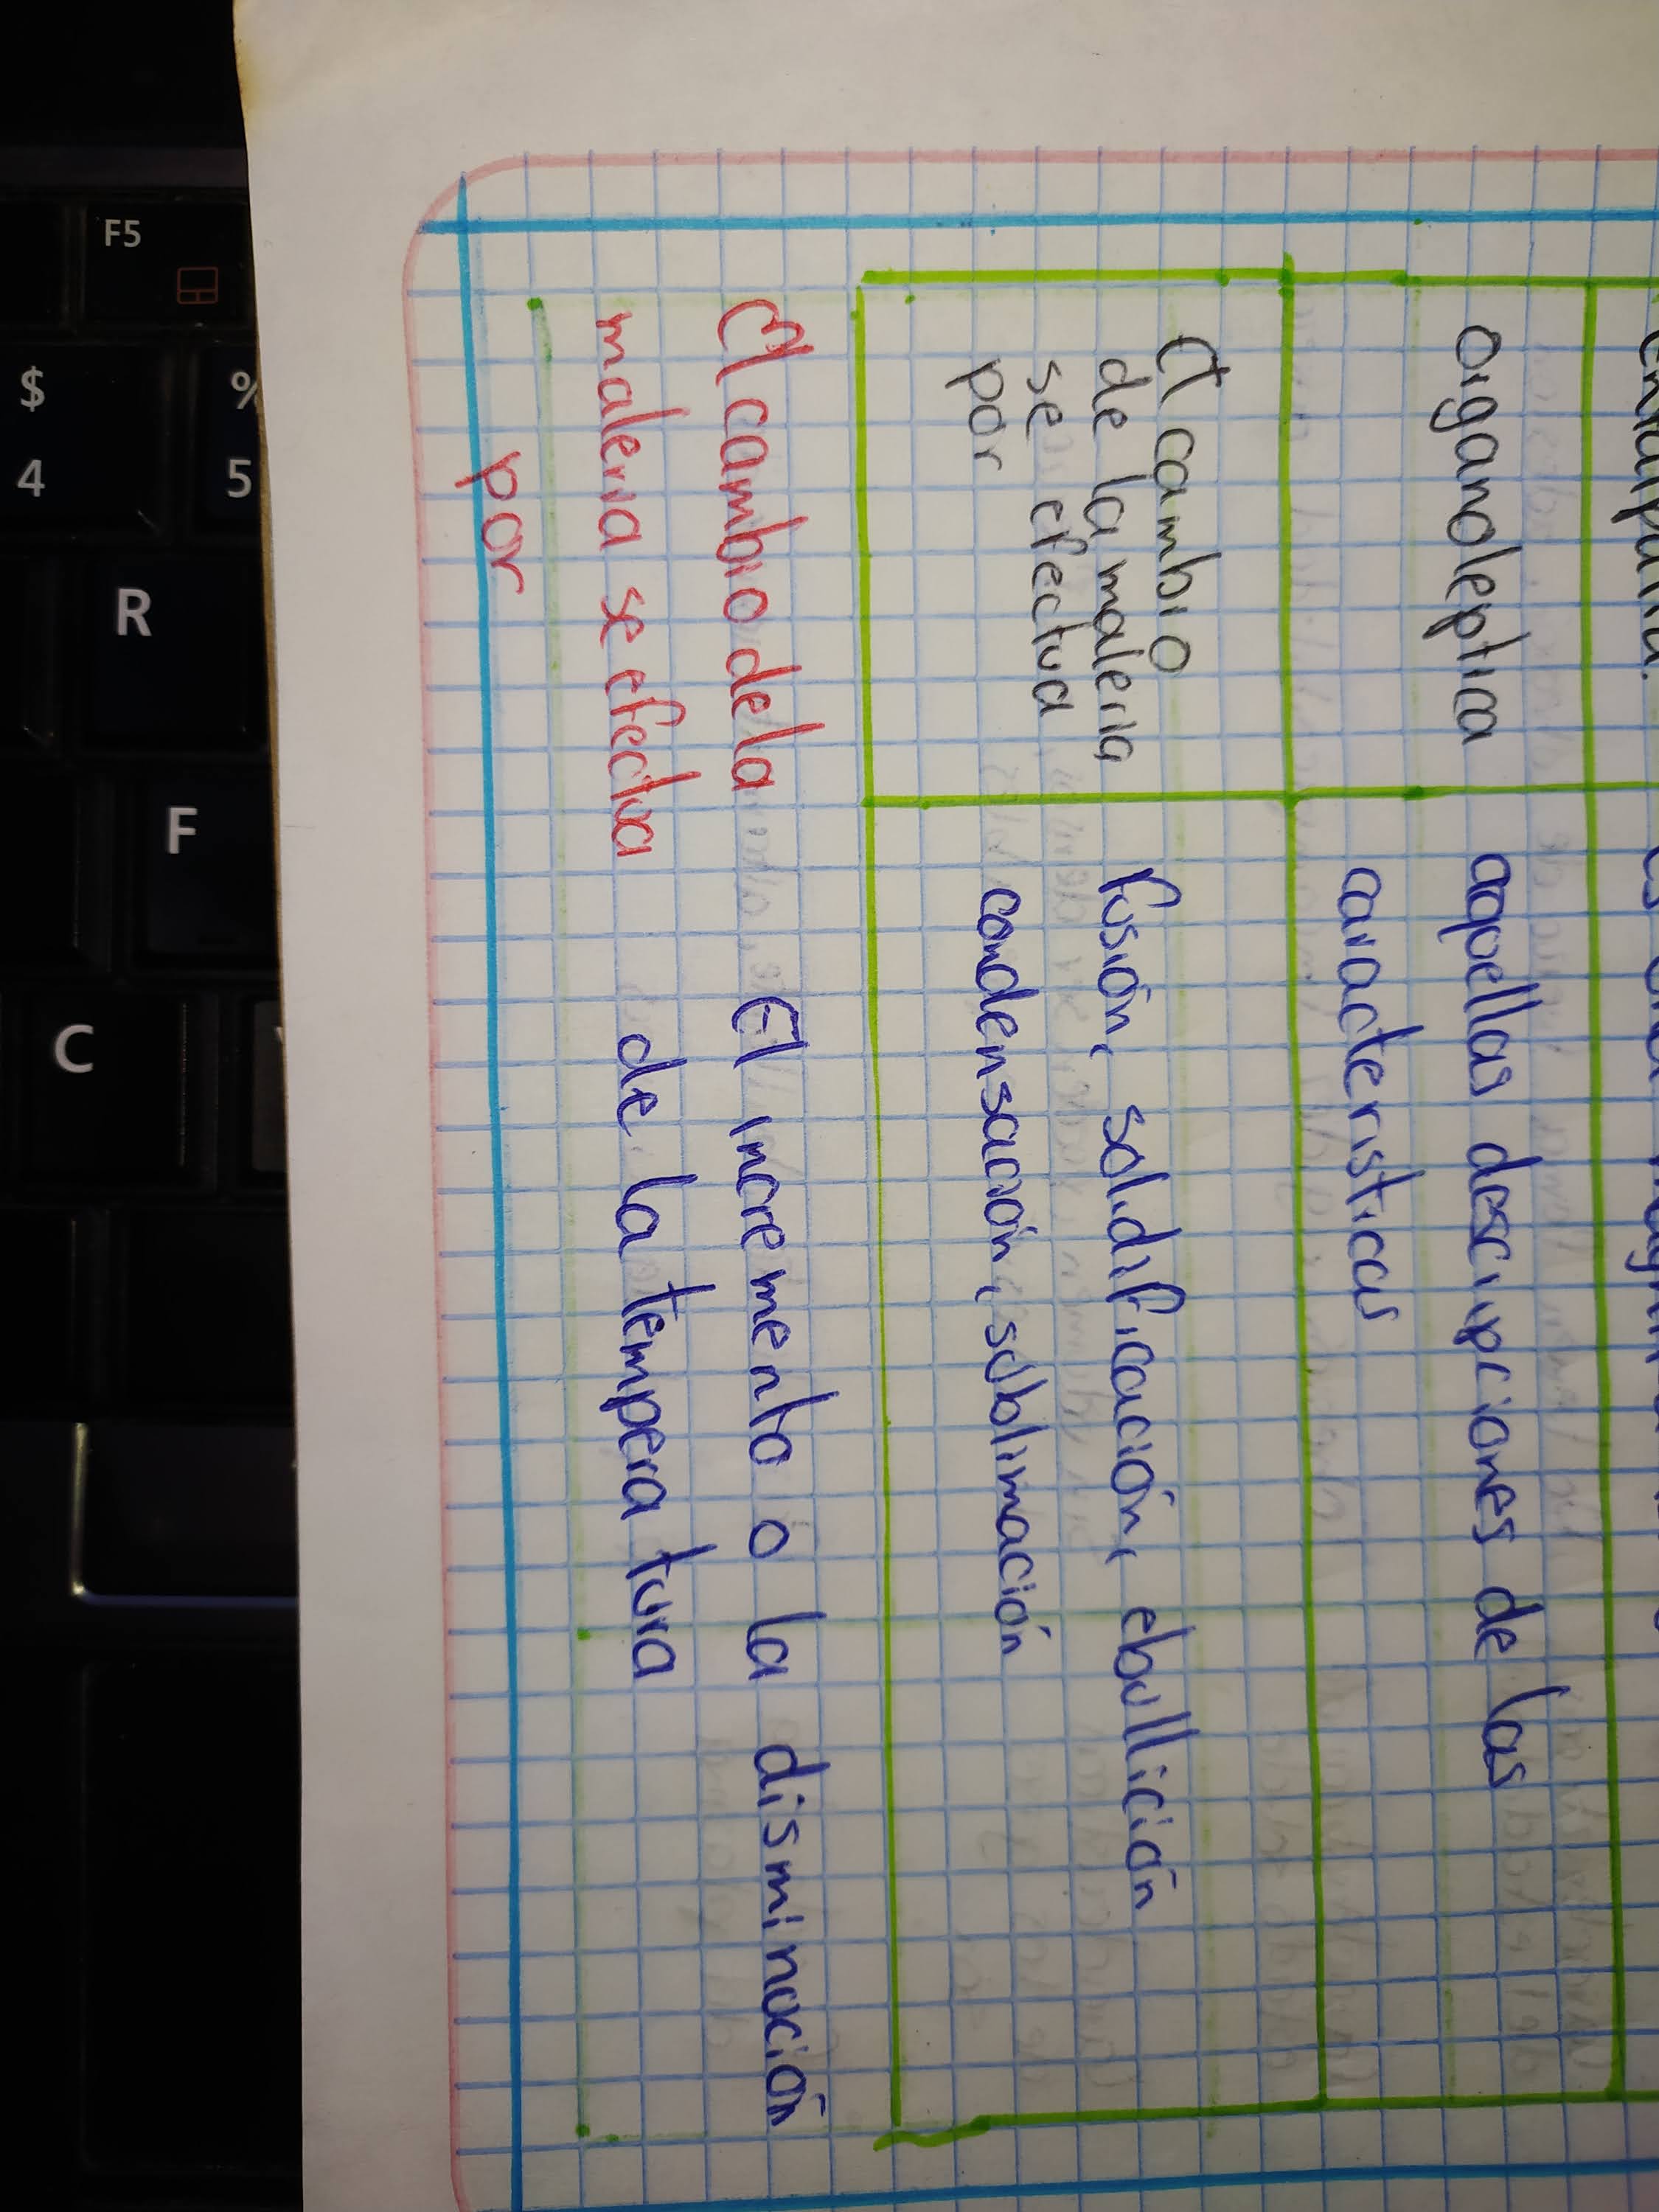 organoleptica
aquellas descripciones de las
caracteristicas
El cambio
de la materia
se efectua
por
fusión, solidificación, ebullición
condensación, sublimación
El cambio de la
materia se efectua
por
El incremento o la disminución
de la temperatura
F5
$
4
%
5
R
F
C